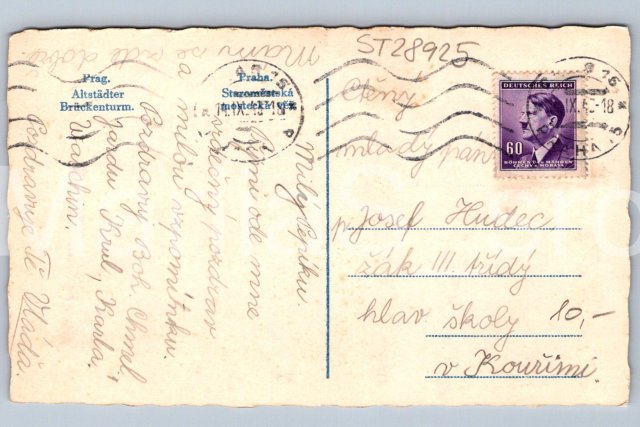 ST28925
Prag.
Altstädter
Brückenturm.
Praha.
Staroměstská
mostecká věž.
DEUTSCHES REICH
60
BÖHMEN UND MÄHREN
ČECHY A MORAVA
PRAHA
Ctěný
mladý pán
p. Josef Hudec
žák III třídy
hlav školy
v Kouřimi.
10,-
Milý Pepíku
Přijmi ode mne
srdečný pozdrav
a milou vzpomínku.
Pozdravuj Boh. Chmel,
Jardu Krul, Karla,
Mám se zde dobře.
Pozdravuje Tě Vláďa.